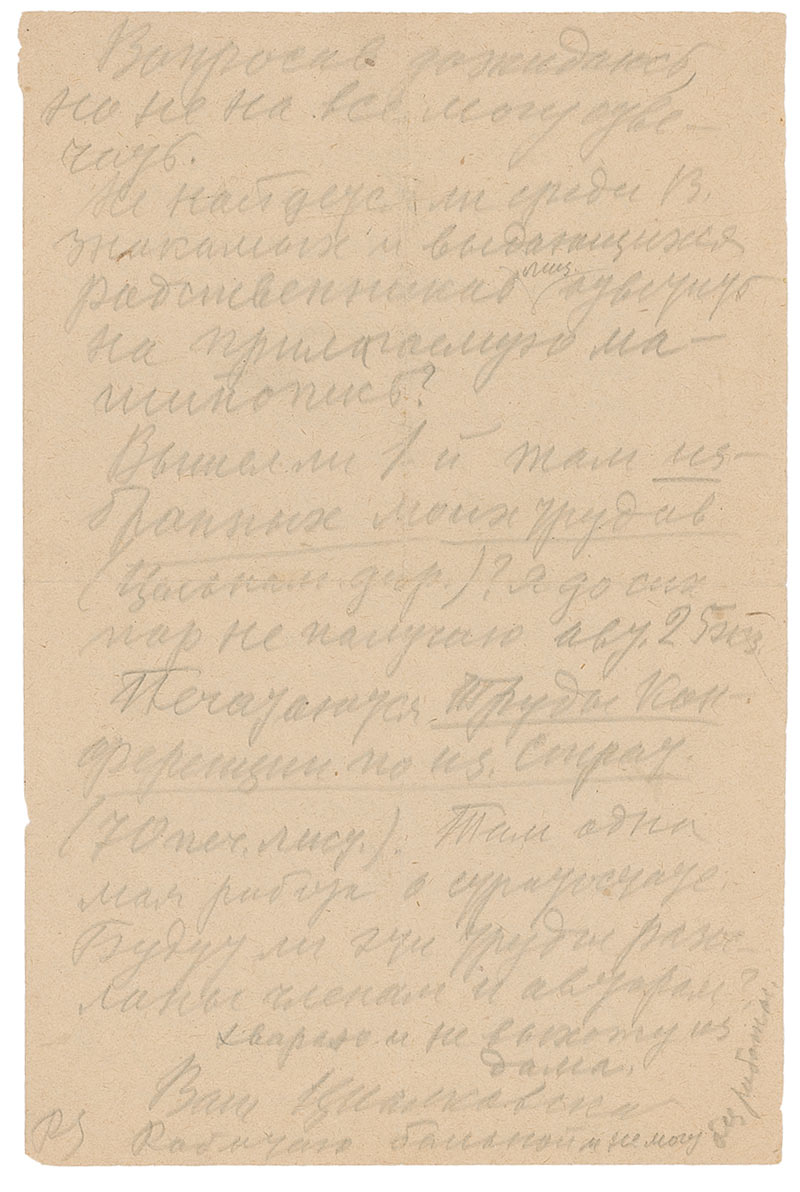 Вопросов дожидаюсь,
но не на все могу отве-
чать.
Не найдется ли среди В.
знакомых и выдающихся
родственников лиц ответить
на прилагаемую ма-
шинопись?
Вышел ли 1й том из-
бранных моих трудов
(Цельномет. дир.)? Я до сих
пор не получаю авт. 25 экз.
Печатаются Труды Кон-
ференции по из. Страт.
(70 печ. лист.). Там одна
моя работа о стратостате.
Будут ли эти труды разос-
ланы членам и авторам?
Хвораю и не выхожу из
дома.
Ваш Циолковский
Работаю больной и не могу
без работы.